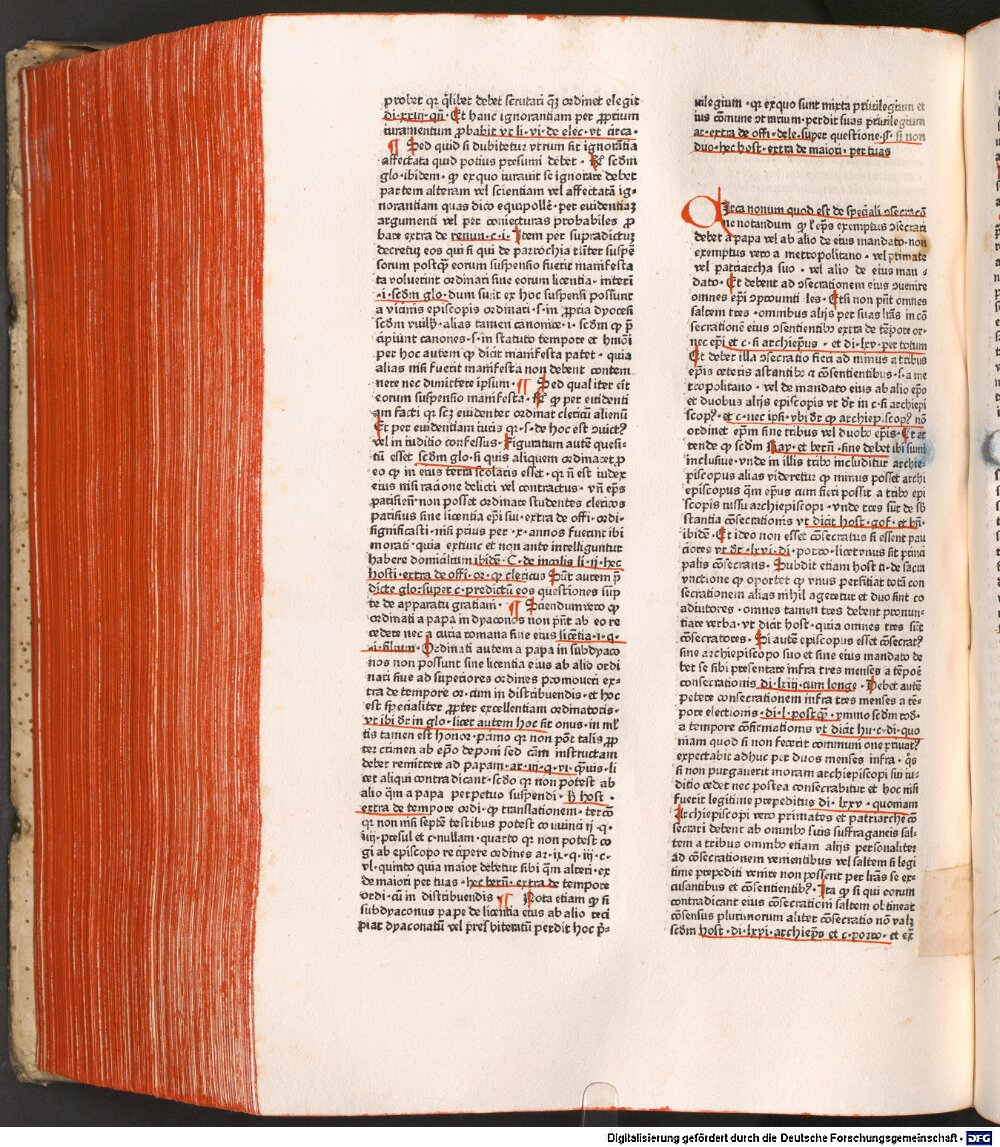 probet qr qͥlibet debet scrutari qͣꝫ ordinet elegit
di·xxiii·qn̄· Et hanc ignorantiam per ꝓprium
iuramentum ꝓbabit vt li·vi·de elec·vt circa·
¶ Sed quid si dubitetur vtrum sit ignorātia
affectata quid potius presumi debet· R̄ scd̄m
glo·ibidem· qr exquo iurauit se ignorare debet
partem alteram vel scientiam vel affectatā ig-
norantiam quas dico equipollē· per euidentiaꝫ
argumenti vel per coniecturas probabiles ꝓ
bare extra de renun·c·i· Item per supradictuꝫ
decretuꝫ eos qui si qui de parrochia tꝉiter suspē
sorum postqͣꝫ eorum suspensio fuerit manifesta
ta voluerint ordinari sine eorum licentia· interī
·i·scd̄m glo·dum sunt ex hoc suspensi possunt
a vicinis episcopis ordinari·s·in ꝓpria dyocesi
scd̄m vuilh̄·alias tamen canonice·i·scd̄m qꝫ p̄
cipiunt canones·s·in statuto tempore et hm̄oi
per hoc autem qꝫ dicit manifesta patet· quia
alias nisi fuerit manifesta non debent contem
nere nec dimittere ipsum· ¶ Sed qualiter eīt
eorum suspensio manifesta· R̄ qꝫ per euidenti
am facti qr scꝫ euidenter ordinat clericū alienū
Et per euidentiam iuris qr·s·de hoc est ↄuict?
vel in iuditio confessus· Figuratum autē quesi-
tū esset scd̄m glo·si quis aliquem ordinaret ꝓ
eo qꝫ in eius terra scolaris esset· qr n̄ est iudex
eius nisi racione delicti vel contractus· vn̄ ep̄s
parisien̄ non posset ordinare studentes clericos
parisius sine licentia ep̄i sui·extra de offi·ordi·
significasti·nisi prius per·x·annos fuerint ibi
morati·quia extunc et non ante intelliguntur
habere domicilium ibidē· C·de incolis li·ij·hec
hosti·extra de offi·or·qꝫ clericus Sūt autem p̄
dicte glo·super c·predictū eos questiones sūp
te de apparatu gratiani· ¶ Sciendum vero qꝫ
ordinati a papa in dyaconos non pn̄t ab eo re
cedere nec a curia romana sine eius licētia·i·q·
·i·si̅lum· Ordinati autem a papa in subdyaco
nos non possunt sine licentia eius ab alio ordi
nari siue ad superiores ordines promoueri ex-
tra de tempore or·cum in distribuendis·et hoc
est specialiter ꝓpter excellentiam ordinatoris·
vt ibi dr̄ in glo·licet autem hoc sit onus·in ml̄
tis tamen est honor·primo qr non pōt talis ꝓp
ter crimen ab ep̄o deponi sed cām instructam
debet remittere ad papam·ar·iii·q·vi·qͣuis·li
cet aliqui contradicant·scd̄o qr non potest ab
alio qͣm a papa perpetuo suspendi· h̄ host·
extra de tempore ordi·qꝫ translationem·tercō
qr non nisi septē testibus potest conuinci ij·q·
iiij·presul et c·nullam·quarto qr non potest co
gi ab episcopo recipere ordines ar·ii·q·iii·c·
vl·quinto quia maior debetur sibi qͣm alteri·ex
de maiori per tuas·hec bern̄·extra de tempore
ordi·cū in distribuendis ¶ Nota etiam qꝫ si
subdyaconus pape de licentia eius ab alio reci
piat dyaconatū vel presbiteratū perdit hoc p̄-
uilegium·qr exquo sunt mixta priuilegium et
ius cōmune ↄtrarium·perdit suas priuilegium
ar·extra de offi·dele·super questione·ss·si non
duo·hec host·extra de maiori·per tuas
CIrca nonum quod est de speciali ↄsecracō
ne notandum qꝫ l̄ ep̄s exemptus ↄsecrari
debet a papa vel ab alio de eius mandato·non
exemptus vero a metropolitano·vel primate
vel patriarcha suo·vel alio de eius man-
dato· Et debent ad ↄsecrationem eius ↄuenire
omnes ep̄i ↄprouinti les· Etsi non pn̄t omnes
saltem tres·omnibus alijs per suas lr̄as in cō
secratione eius ↄsentientibꝰ extra de tēpore or-
nec ep̄i et c·si archiep̄us·et di·lxv·per totum
Et debet illa ↄsecratio fieri ad minus a tribus
ep̄is ceteris astantibꝰ ⁊ cōsentientibus·s·a me
tropolitano·vel de mandato eius ab alio ep̄o
et duobus alijs episcopis vt dr̄ in c·si archiepi
scop?·et c·nec ipsi·vbi dr̄ qꝫ archiep.scop? nō
ordinet ep̄m sine tribus vel duobꝰ ep̄is· Et at
tende qꝫ scd̄m Ray·et bern̄·sine debet ibi sumi
inclusiue·vnde in illis tribꝰ includitur archie-
piscopus alias videretur qꝫ minus posset archi
episcopus qͣm ep̄us cum fieri possit a tribꝰ epi
scopis iussu archiepiscopi·vnde tres sūt de sb̄
stantia cōsecrationis vt dicit host·gof·et bn̄·
ibidē· Et ideo non esset cōsecratus si essent pau
ciores vt dr̄·lxvi·di·porro·licet vnus sit princi
palis cōsecrans· Subdit etiam host ti·de sacra
vnctione qꝫ oportet qꝫ vnus perficiat totā con
secrationem alias nihil ageretur et duo sint co
adiutores·omnes tamen tres debent pronun-
tiare verba·vt dicit host·quia omnes tres sūt
cōsecratores· Si autē episcopus esset cōsecrat?
sine archiepiscopo suo et sine eius mandato de
bet se sibi presentare infra tres menses a tēpoē
consecrationis di·lxiij·cum longe· Debet autē
petere consecrationem infra tres menses a tē-
pore electionis·di·l·postqͣꝫ·ymmo scd̄m rod̄·
a tempore cōfirmationis vt dicit hu·c·di·quo
niam quod si non fecerit communione priuat?
expectabit adhuc per duos menses infra·qͦs
si non purgauerit moram archiepiscopi sui iu-
ditio cedet nec postea consecrabitur et hoc nisi
fuerit legitime prepeditus di·lxxv·quoniam
Archiepiscopi vero primates et patriarche cō
secrari debent ab omnibꝰ suis suffraganeis sal-
tem a tribus omnibꝰ etiam alijs personaliter
ad cōsecrationem venientibus vel saltem si legi
time prepediti venire non possent per lr̄as se ex-
cusantibus et cōsentientib?· Ita qꝫ si qui eorum
contradicant eius cōsecrationi saltem obtineat
cōsensus plurimorum aliter cōsecratio nō valꝫ
scd̄m host·di·lxvi·archiep̄s et c·porro·et ex̄
Digitalisierung gefördert durch die Deutsche Forschungsgemeinschaft · DFG